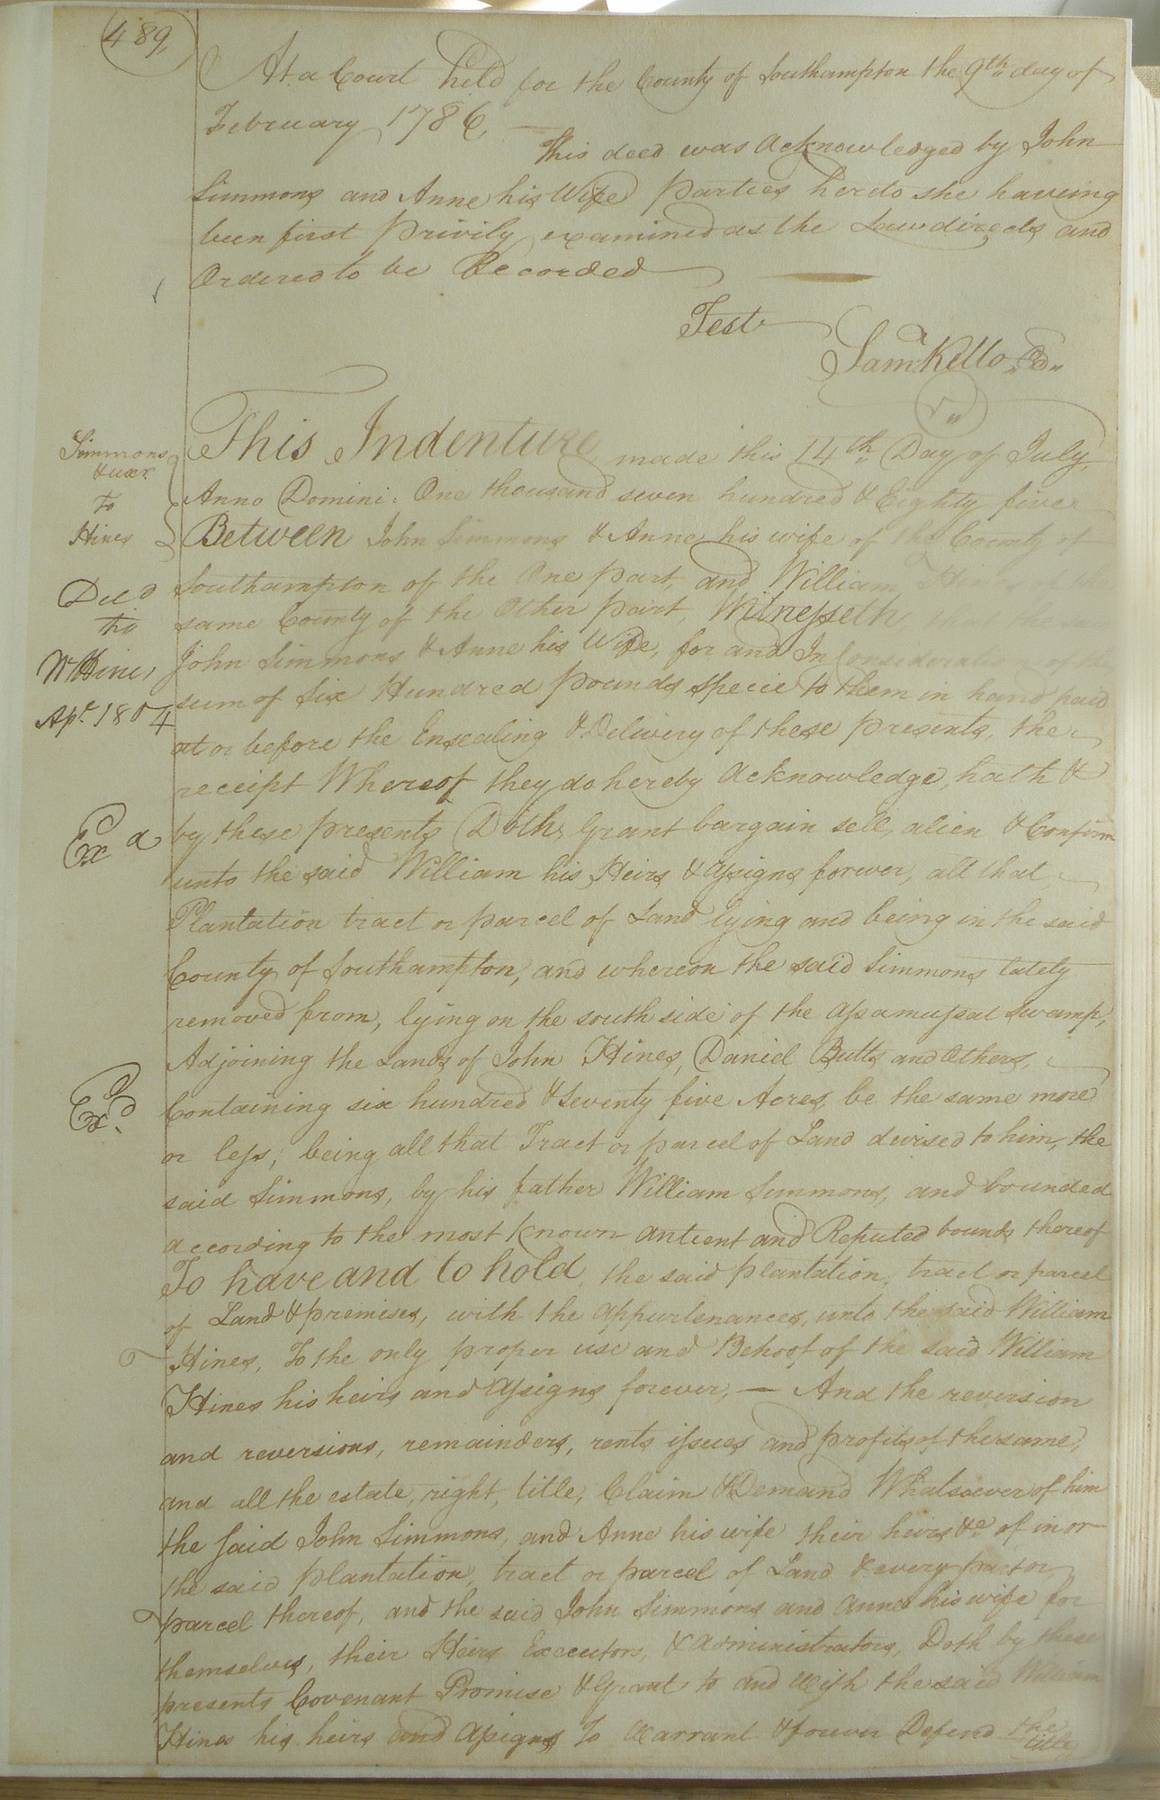 489,
At a Court held for the County of Southampton the 9th day of
February 1786,
This deed was acknowledged by John
Simmons and Anne his Wife parties herdo she haveing
been first privily examined as the Law directs and
Ordered to be Recorded
Test
Saml Kello Cd
Simmons
& uxr
To
Hines
Deed
to
Wm Hines
Apl 1804
Exd
Exd
This Indenture made this 14th Day of July
Anno Domini: One thousand seven hundred & Eighty five
Between John Simmons & Anne his wife of the County of
Southampton of the One part, and William
same County of the Other part, Witnesseth
John Simmons & Anne his Wife, for and In Consideration of the
sum of Six Hundred pounds specie to them in hand paid
at or before the Ensealing & Delivery of these presents, the
receipt Whereof they do hereby Acknowledge, hath &
by these presents Doth, Grant bargain sell, alien & Confirm
unto the said William his Heirs & assigns forever, all that
Plantation tract or parcel of Land lying and being in the said
County of Southampton, and whereon the said Simmons lately
removed from, lying on the south side of the Assamussat Swamp,
Adjoining the Lands of John Hines, Daniel Butts and Others,
Containing six hundred & Seventy five Acres be the same more
or less; being all that Tract or parcel of Land devised to him, the
said Simmons, by his father William Simmons, and bounded
according to the most known antient and Reputed bounds thereof
To have and to hold, the said plantation, tract or parcel
of Land & premises, with the appurtenances, unto the said William
Hines, To the only proper use and Behoof of the said William
Hines his heirs and assigns forever, — And the reversion
and reversions, remainders, rents issues and profits of the same,
and all the estate, right, title, Claim & Demand Whatsoever of him
the said John Simmons, and Anne his wife their heirs &c of in or
the said plantation, tract or parcel of Land & every part or
parcel thereof, and the said John Simmons and Anne his wife for
themselves, their Heirs Executors, & administrators, Doth by these
presents Covenant Promise & Grant to and With the said William
Hines his heirs and assigns To Warrant & forever Defend the
title